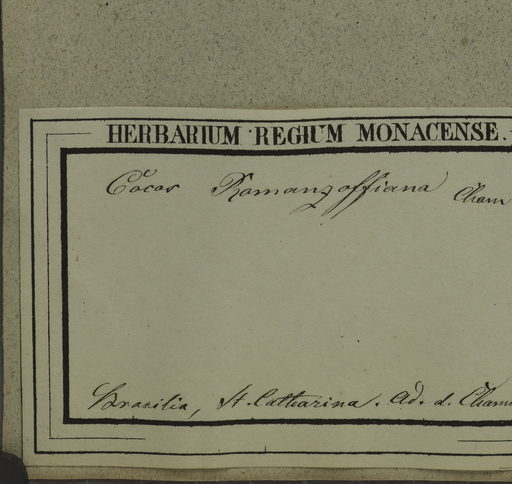 HERBARIUM REGIUM MONACENSE.
Cocos Romanzoffiana Cham
Brasilia, St. Catharina. Ad. d. Cham